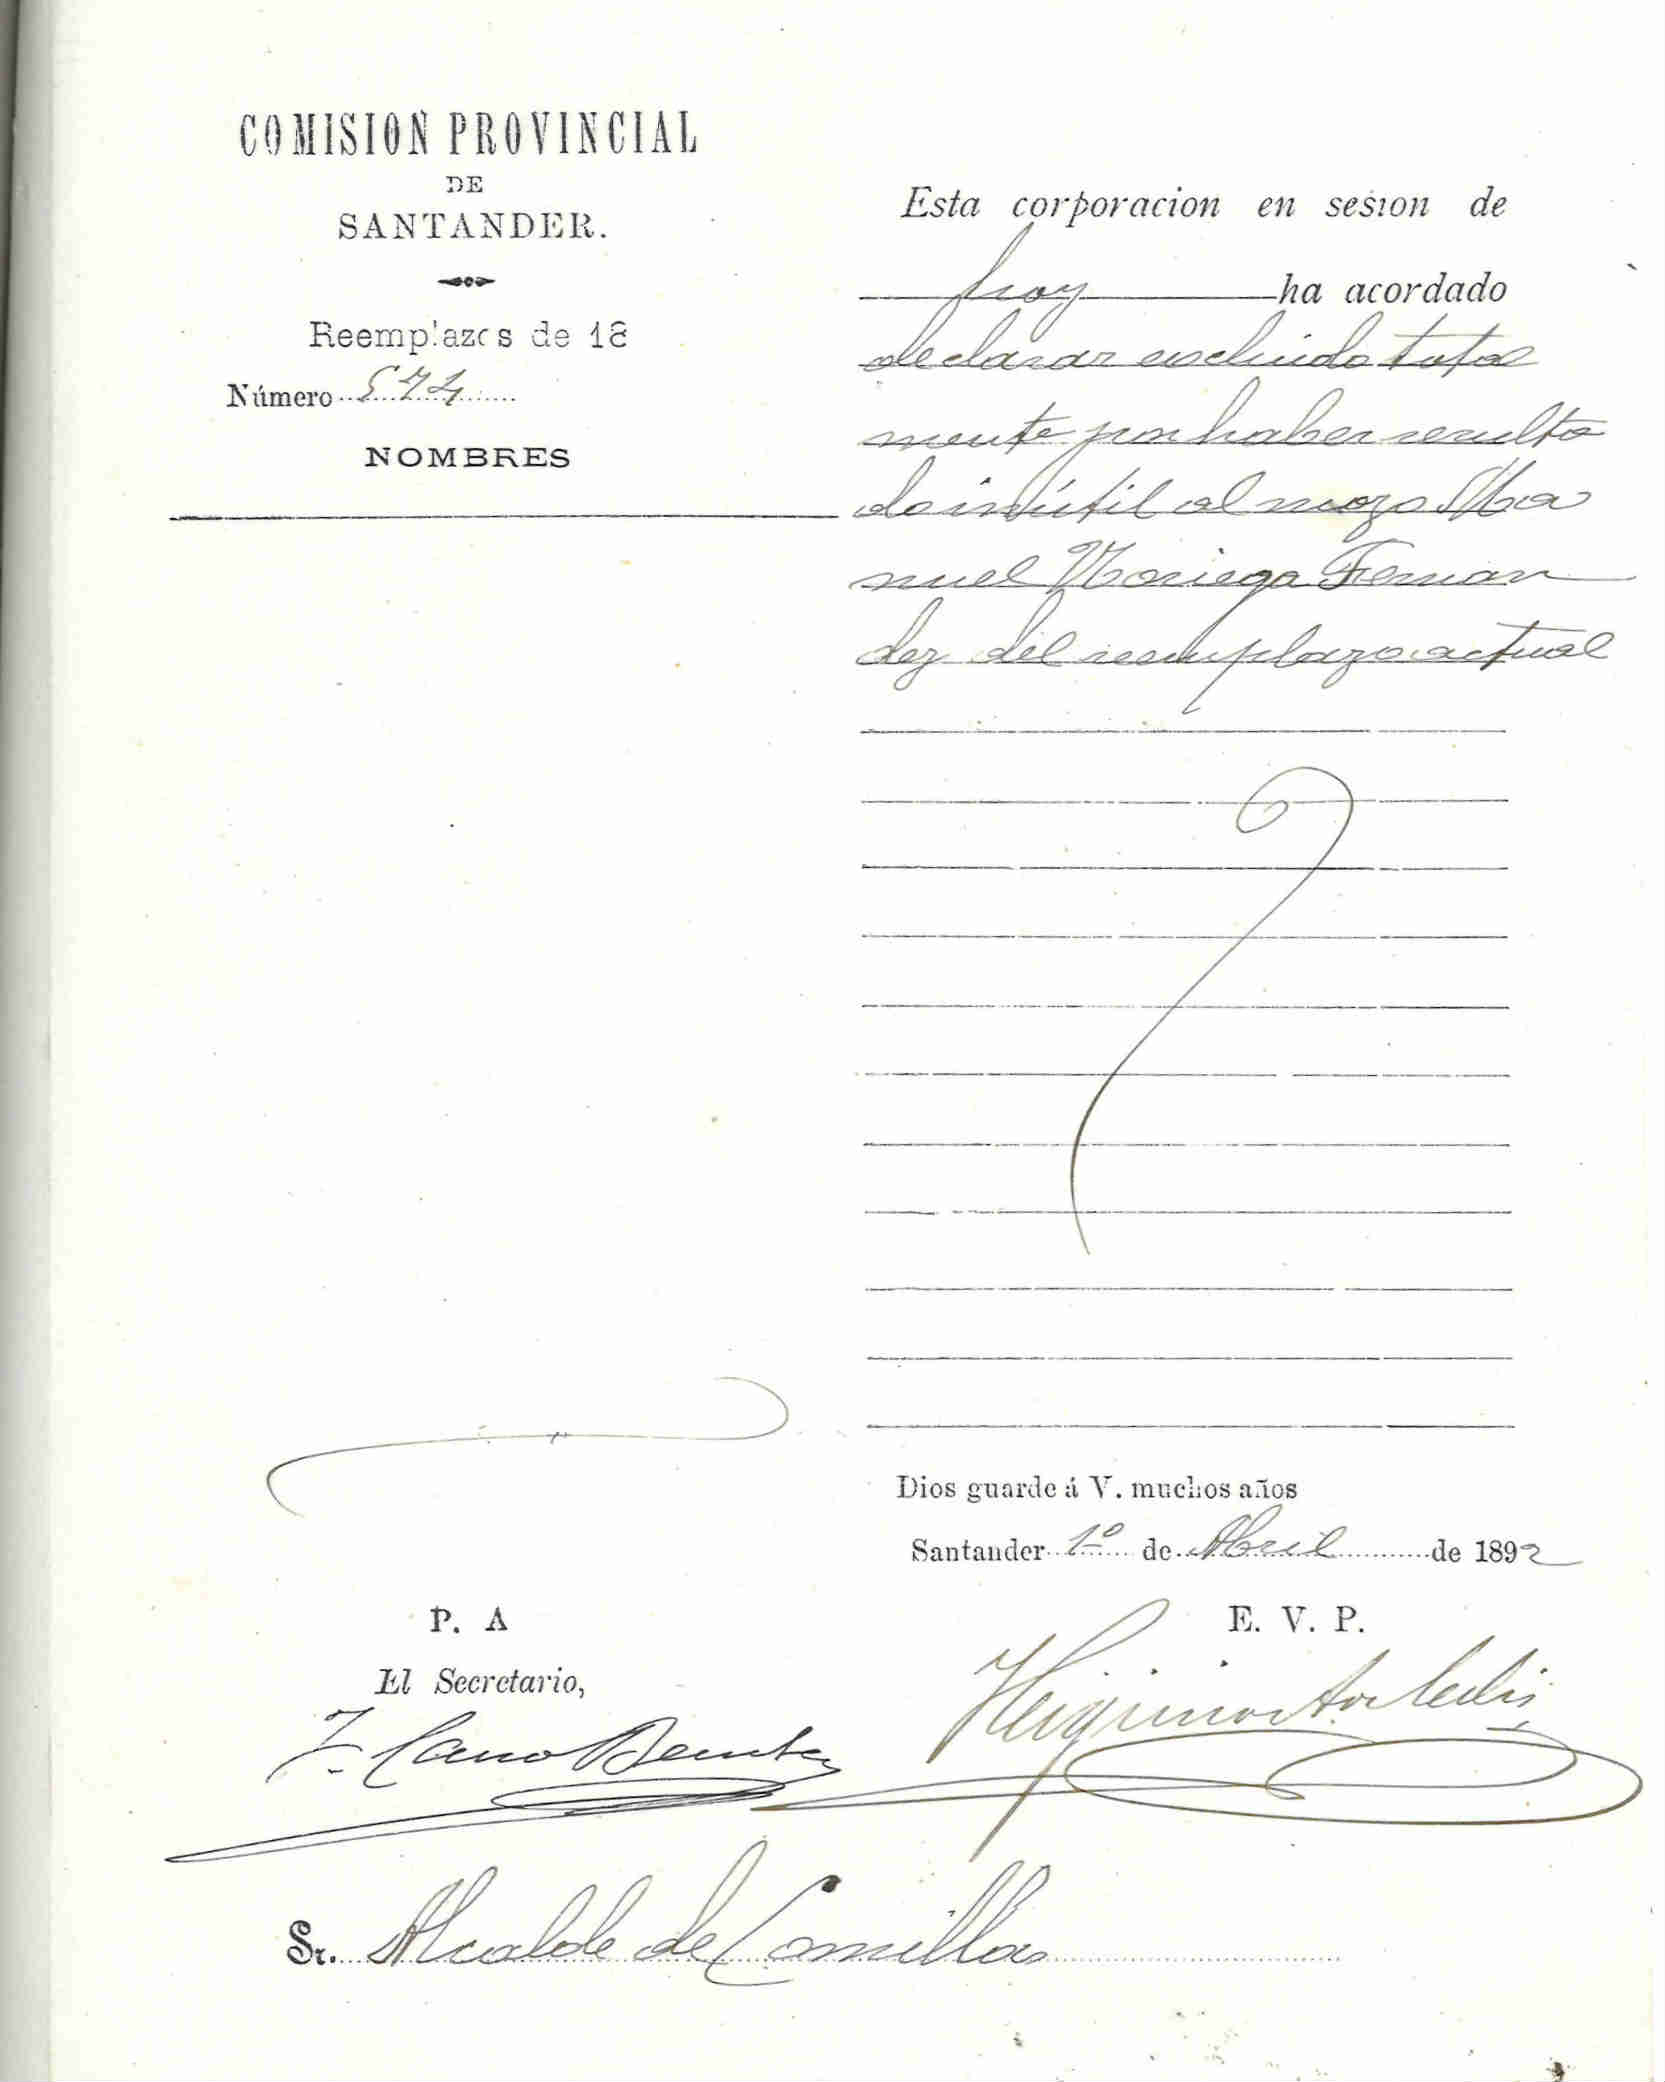 COMISION PROVINCIAL
DE
SANTANDER.
Reemplazos de 18
Número 574
NOMBRES
Esta corporacion en sesion de
hoy ha acordado
declarar escluido total
mente por haber resulta
do inútil al mozo Ma
nuel Noriega Fernan
dez del reemplazo actual
Dios guarde á V. muchos años
Santander 1º de Abril de 1892
P. A
El Secretario,
E. V. P.
Sr. Alcalde de Comillas